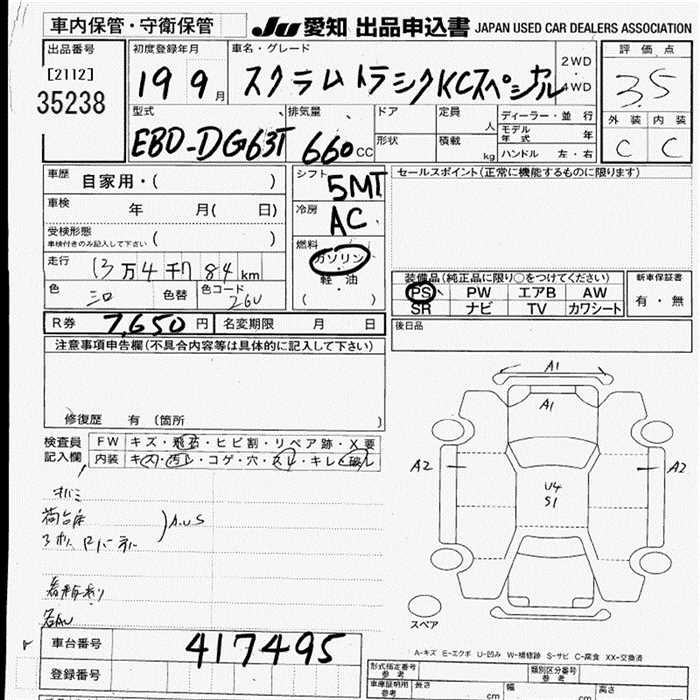 車内保管・守衛保管
JU 愛知 出品申込書 JAPAN USED CAR DEALERS ASSOCIATION
出品番号
[2112]
35238
初度登録年月
19 9月
車名・グレード
スクラムトラックKCスペシャル
2WD
4WD
評価点
3.5
外装 内装
C C
型式
EBD-DG63T
排気量
660cc
ドア
形状
定員
人
積載
kg
ディーラー・並行
モデル年式 年
ハンドル 左・右
車歴
自家用・( )
車検
年 月( 日)
受検形態
車検付きのみ記入して下さい ( )
走行
13万4千784km
色
色替
色コード
26U
シフト
5MT
冷房
AC
燃料
ガソリン
・
軽油
( )
セールスポイント(正常に機能するものに限ります)
装備品(純正品に限り○をつけてください)
PS PW エアB AW
SR ナビ TV カワシート
新車保証書
有・無
R券 7,650円 名変期限 月 日
後日品
注意事項申告欄(不具合内容等は具体的に記入して下さい)
修復歴 有 (箇所
検査員記入欄
FW キズ・飛石・ヒビ割・リペア跡・X要
内装 キズ・汚レ・コゲ・穴・スレ・キレ・破レ
A.U.S
A1
A1
A2
A2
U4
S1
スペア
A-キズ E-エクボ U-凹み W-補修跡 S-サビ C-腐食 XX-交換済
車台番号 417495
登録番号
形式指定番号
参考
類別区分番号
参考
車庫証明用
参考
長さ
cm
幅
cm
高さ
cm